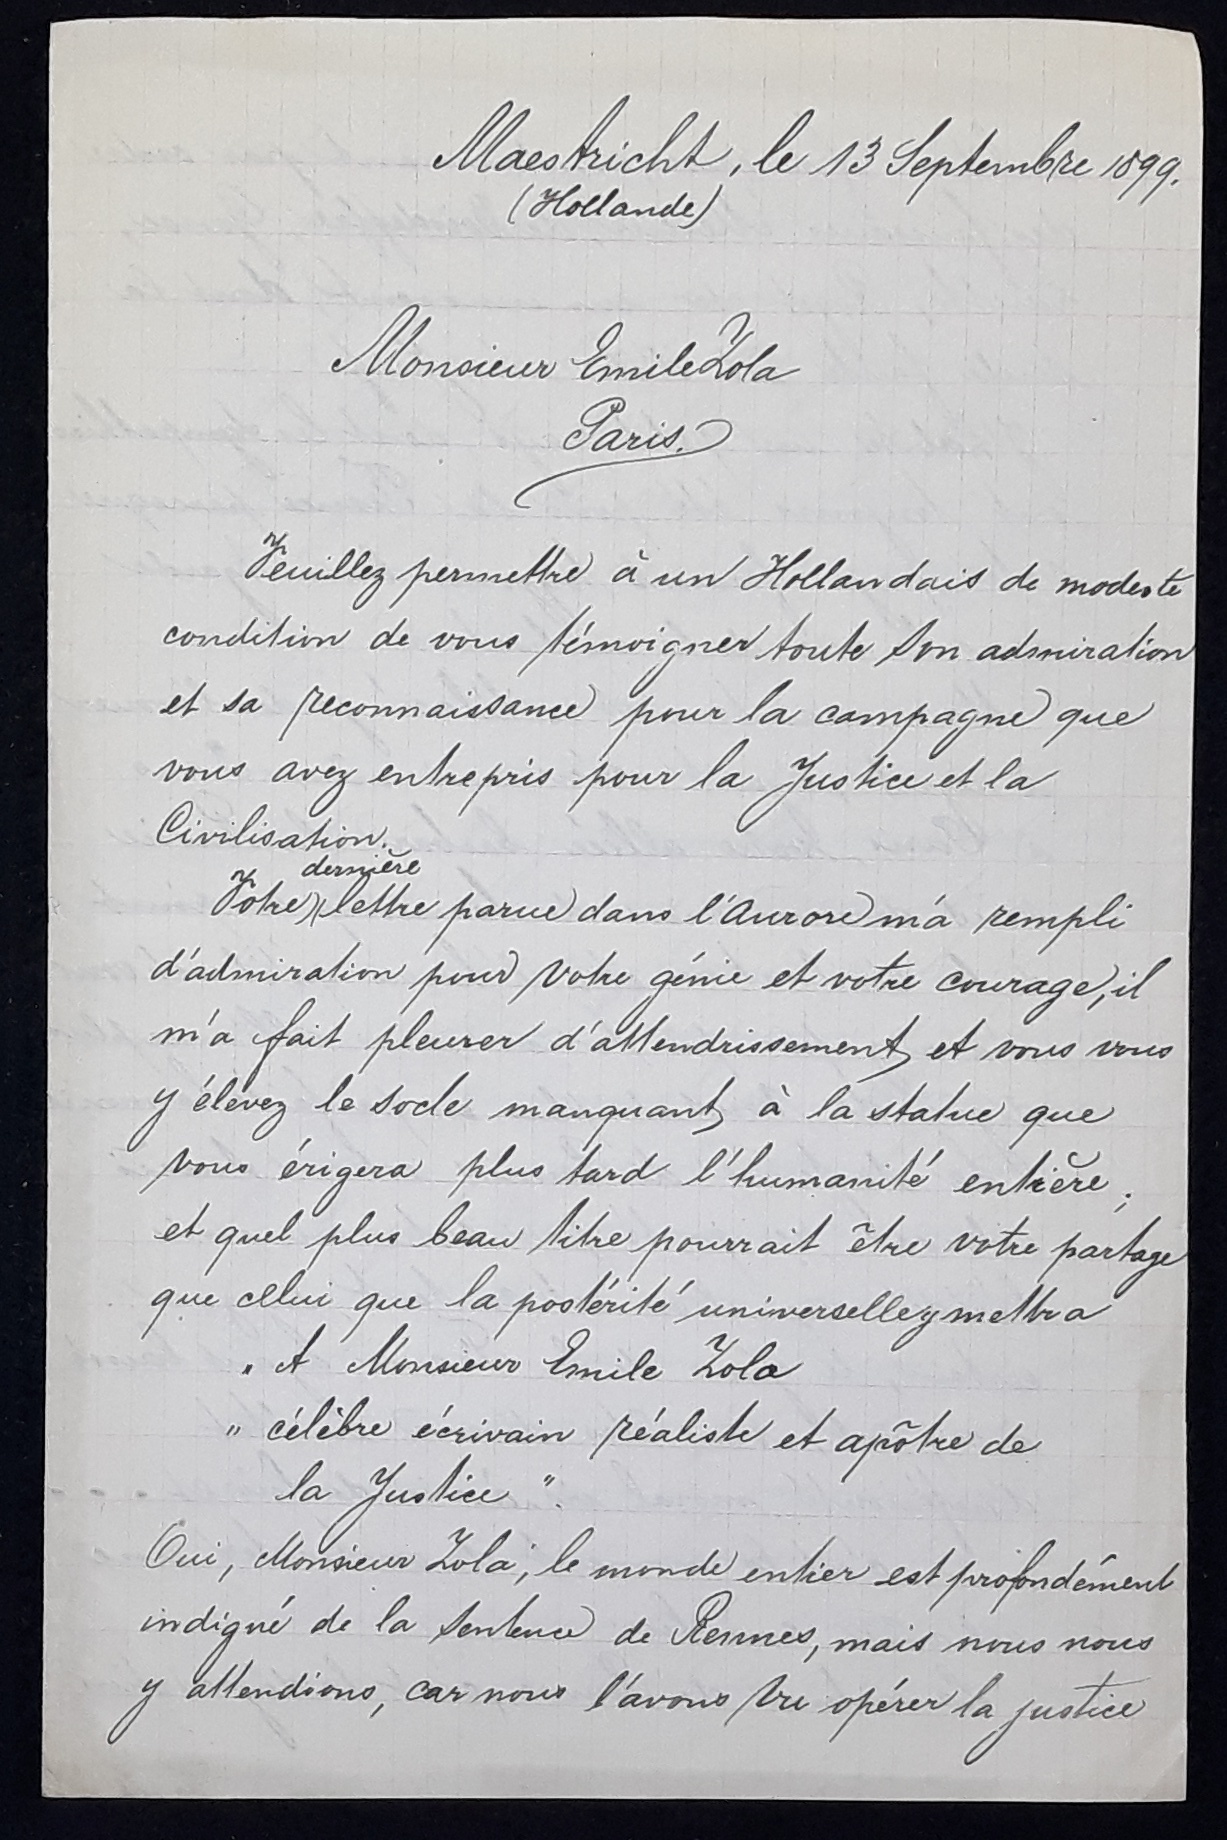 Maestricht, le 13 Septembre 1899.
(Hollande)
Monsieur Emile Zola
Paris.
Veuillez permettre à un Hollandais de modeste
condition de vous témoigner toute son admiration
et sa reconnaissance pour la campagne que
vous avez entrepris pour la Justice et la
Civilisation.
dernière
Votre lettre parue dans l'Aurore m'a rempli
d'admiration pour votre génie et votre courage, il
m'a fait pleurer d'attendrissement, et vous vous
y élevez le socle manquant, à la statue que
vous érigera plus tard l'humanité entière;
et quel plus beau titre pourrait être votre partage
que celui que la postérité universelle y mettra
" A Monsieur Emile Zola
" célèbre écrivain réaliste et apôtre de
la Justice ".
Oui, Monsieur Zola, le monde entier est profondément
indigné de la sentence de Rennes, mais nous nous
y attendions, car nous l'avons vu opérer la justice